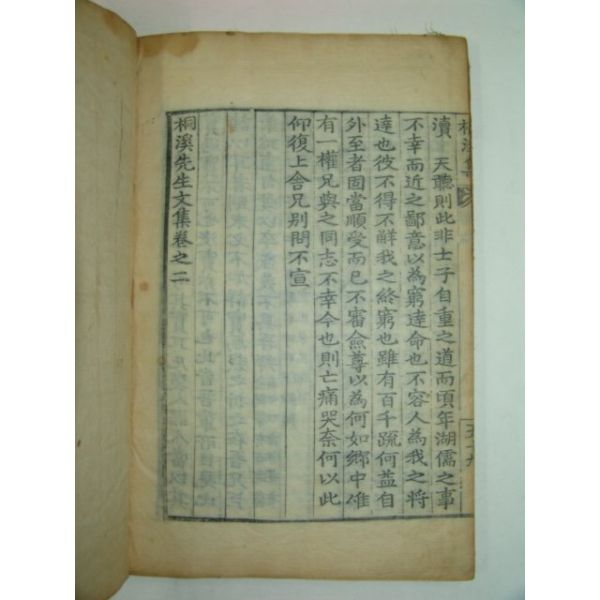 桐溪集
瀆 天聽則此非士子自重之道而頃年湖儒之事
不幸而近之鄙意以為窮達命也不容人為我之將
達也彼不得不解我之終窮也雖有百千疏何益自
外至者固當順受而已不審僉尊以為何如鄉中惟
有一權兄與之同志不幸今也則亡痛哭奈何以此
仰復上舍兄別問不宣
桐溪先生文集卷之二